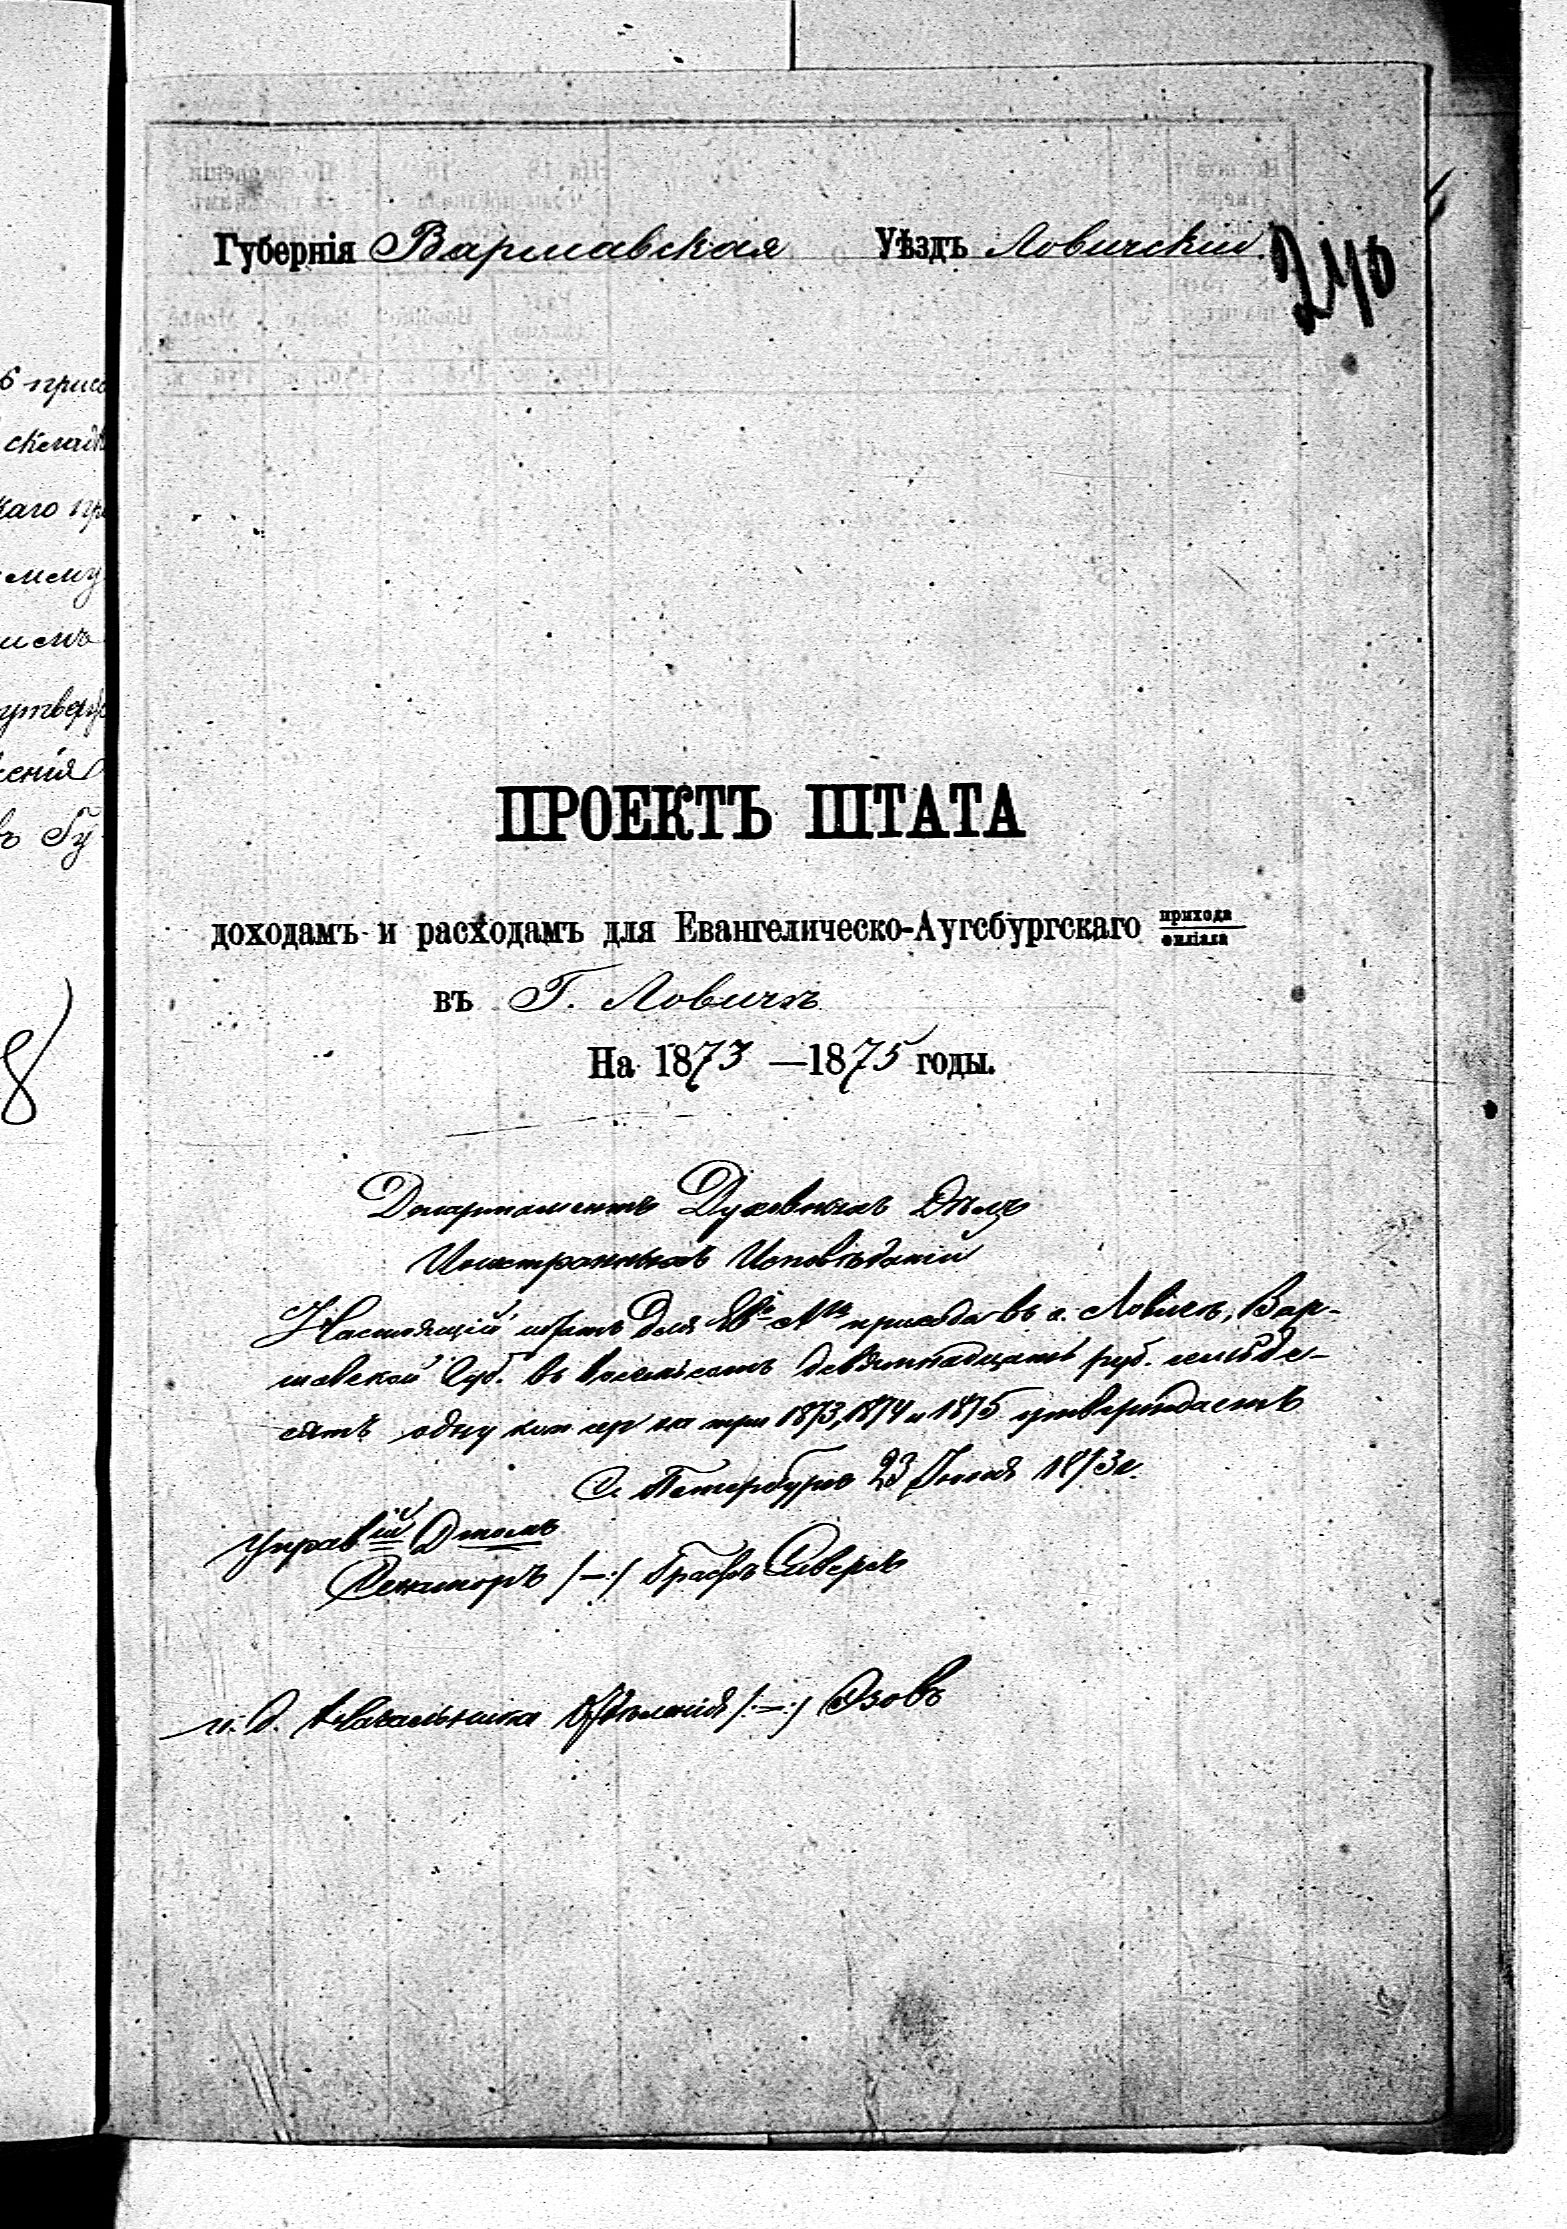 Губернія Варшавская Уѣздъ Ловичскій.
240
ПРОЕКТЪ ШТАТА
доходамъ и расходамъ для Евангелическо-Аугсбургскаго прихода
филіала
въ Г. Ловичѣ
На 1873 — 1875 годы.
Департаментъ Духовныхъ Дѣлъ
Иностранныхъ Исповѣданій
Настоящій штатъ для прихода въ г. Ловичѣ, Вар-
шавской Губ. въ восемьсотъ девятнадцать руб. семьде-
сятъ одну коп сер на три 1873, 1874 и 1875 утверждаетъ
С. Петербургъ 23 1873 г.
Управ<sup>ій</sup>
Директоръ /—:/ Графъ Сиверсъ
и. д. Начальника Отдѣленія /:—:/ Озовъ
складк
каго пр
ему
утверж
женія
въ Гу-
8